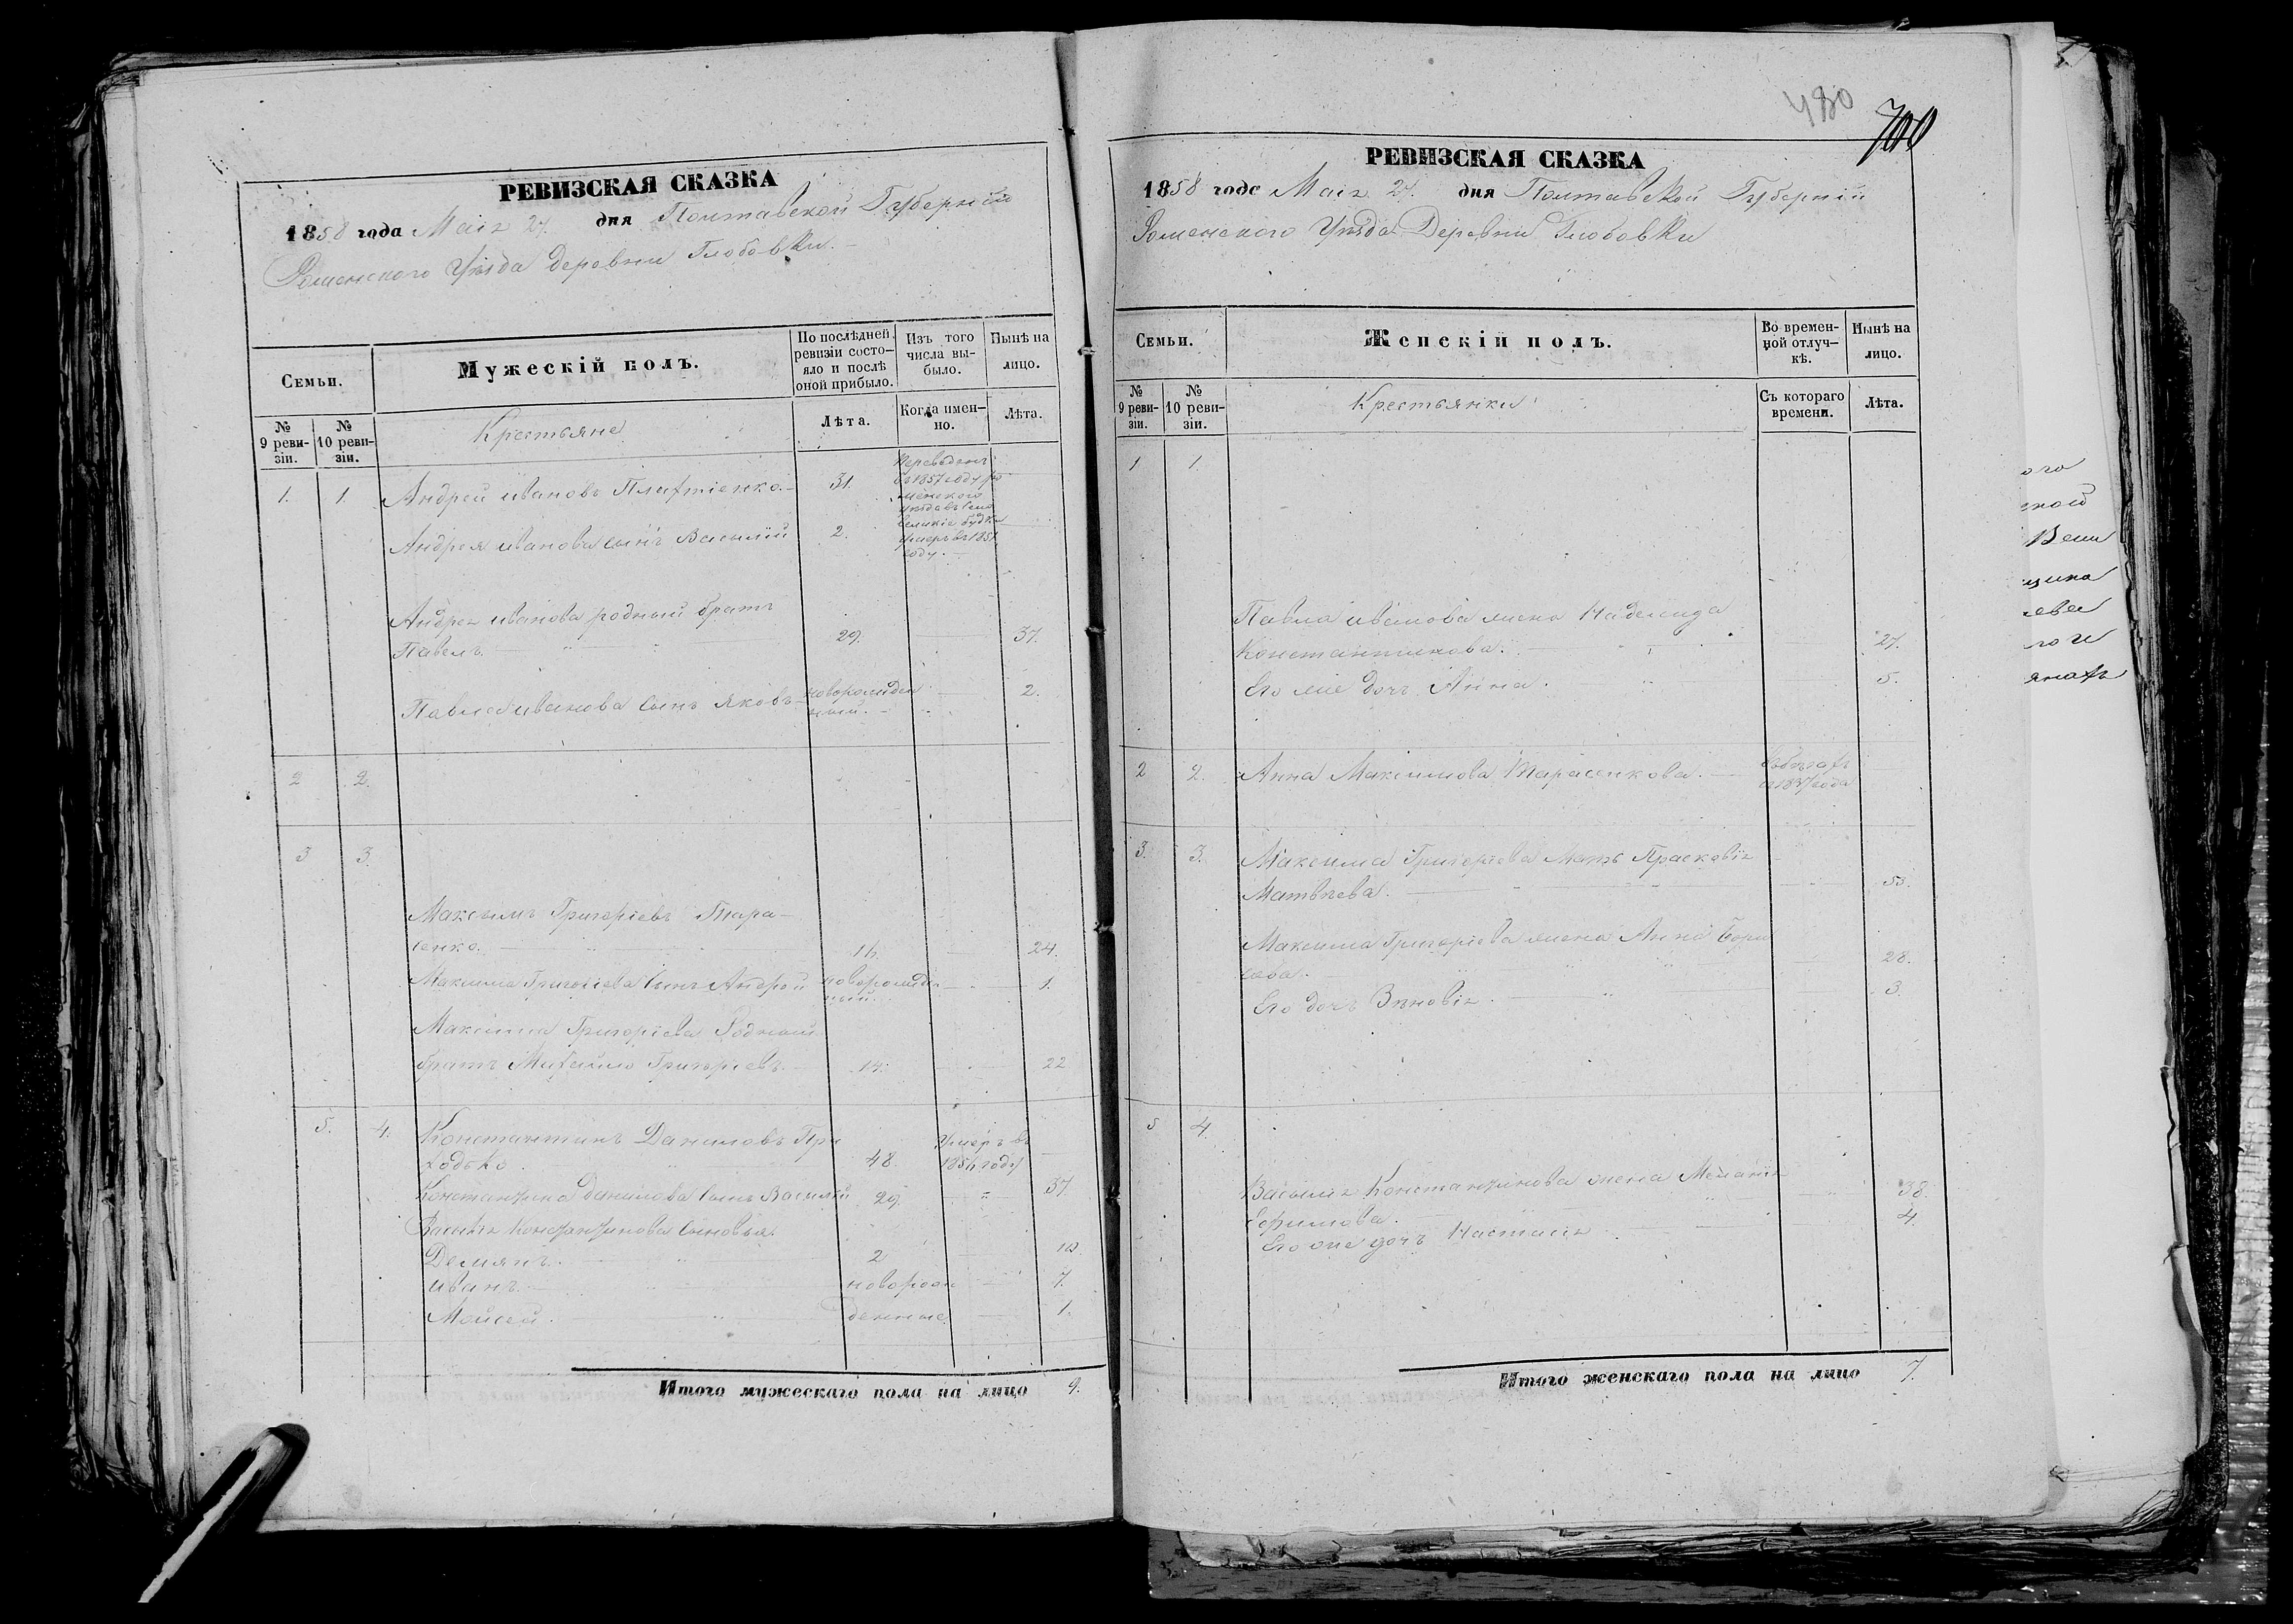 РЕВИЗСКАЯ СКАЗКА
1858 года Маія 27. дня Полтавской Губерніи
Роменского Уѣзда деревни Глобовки.
Семьи.
Мужескій полъ.
По послѣдней ревизіи состо-
яло и послѣ
оной прибыло.
Изъ того
числа вы-
было.
Нынѣ на
лицо.
№
9 реви-
зіи.
№
10 реви-
зіи.
Крестьяне
Лѣта.
Когда имен-
но.
Лѣта.
1. 1. Андрей Ивановъ 31.
Переведенъ
въ 1857 году Ро
менского
уѣзда въ село
великіе будки
Андрея Иванова сынъ Василій 2.
умеръ въ 1851
году.
Андрея Иванова родный братъ
Павелъ. 29. 37.
Павла Иванова сынъ Яковъ новорожден
ный. 2.
2 2.
3 3.
Максымъ Григоріевъ Тара-
сенко. 16. 24.
Максима Григоріева сынъ Андрей новорожден
ный. 1.
Максима Григоріева Родный
братъ Михайло Григоріевъ. 14. 22
5. 4. Константинъ Даниловъ При
ходько. 48. Умеръ въ
1856 году
Константина Данилова сынъ Василій 29. 37.
Василія Константинова сыновья
Демянъ. 2 10.
Иванъ. новорож 7.
Мойсей. денные 1.
Итого мужескаго пола на лицо 9.
480
700
РЕВИЗСКАЯ СКАЗКА
1858 года Маія 27. дня Полтавской Губерніи
Роменского Уѣзда Деревни Глобовки
Семьи.
Женскій полъ.
Во времен-
ной отлуч-
кѣ.
Нынѣ на
лицо.
№
9 реви-
зіи.
№
10 реви-
зіи.
Крестьянки
Съ котораго
времени.
Лѣта.
1 1.
Павла Иванова жена Надежда
Константинова. 27.
Его же дочь Анна. 5.
2 2. Анна Максимова Тарасенкова. въ бѣгахъ
с 1837 года
3. 3. Максима Григоріева мать Прасковія
Матвѣева. 53.
Максима Григоріева жена Анна Бори
сова. 28.
Его дочь Зѣновія. 3.
5 4.
Василія Константинова жена Меланія
Ефимова. 38.
Его же дочь Настасія 4.
Итого женскаго пола на лицо 7.